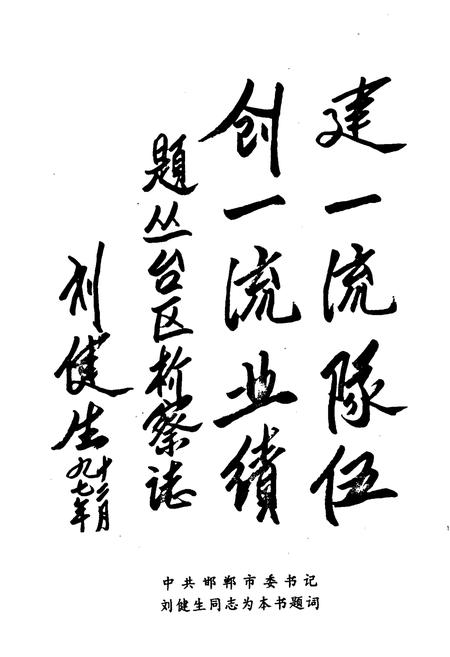 建一流隊伍
创一流业績
題丛台区检察誌
刘健生
九七年十二月
中共邯郸市委书记
刘健生同志为本书题词